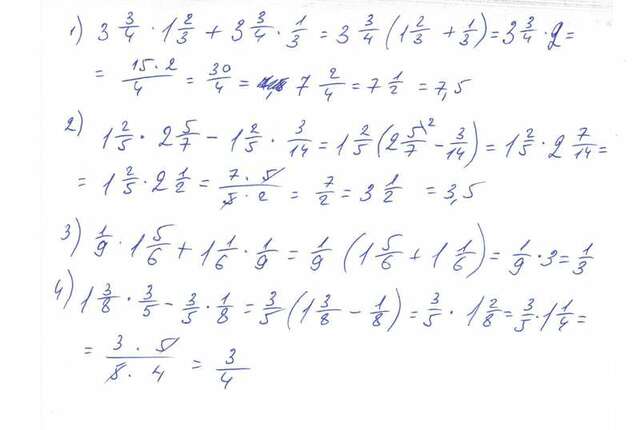 1) 3 3/4 · 1 2/3 + 3 3/4 · 1/3 = 3 3/4 (1 2/3 + 1/3) = 3 3/4 · 2 =
= 15·2/4 = 30/4 = 7 2/4 = 7 1/2 = 7,5
2) 1 2/5 · 2 5/7 - 1 2/5 · 3/14 = 1 2/5 (2 5/7 \2 - 3/14) = 1 2/5 · 2 7/14 =
= 1 2/5 · 2 1/2 = 7·5/5·2 = 7/2 = 3 1/2 = 3,5
3) 1/9 · 1 5/6 + 1 1/6 · 1/9 = 1/9 (1 5/6 + 1 1/6) = 1/9 · 3 = 1/3
4) 1 3/8 · 3/5 - 3/5 · 1/8 = 3/5 (1 3/8 - 1/8) = 3/5 · 1 2/8 = 3/5 · 1 1/4 =
= 3·5/5·4 = 3/4